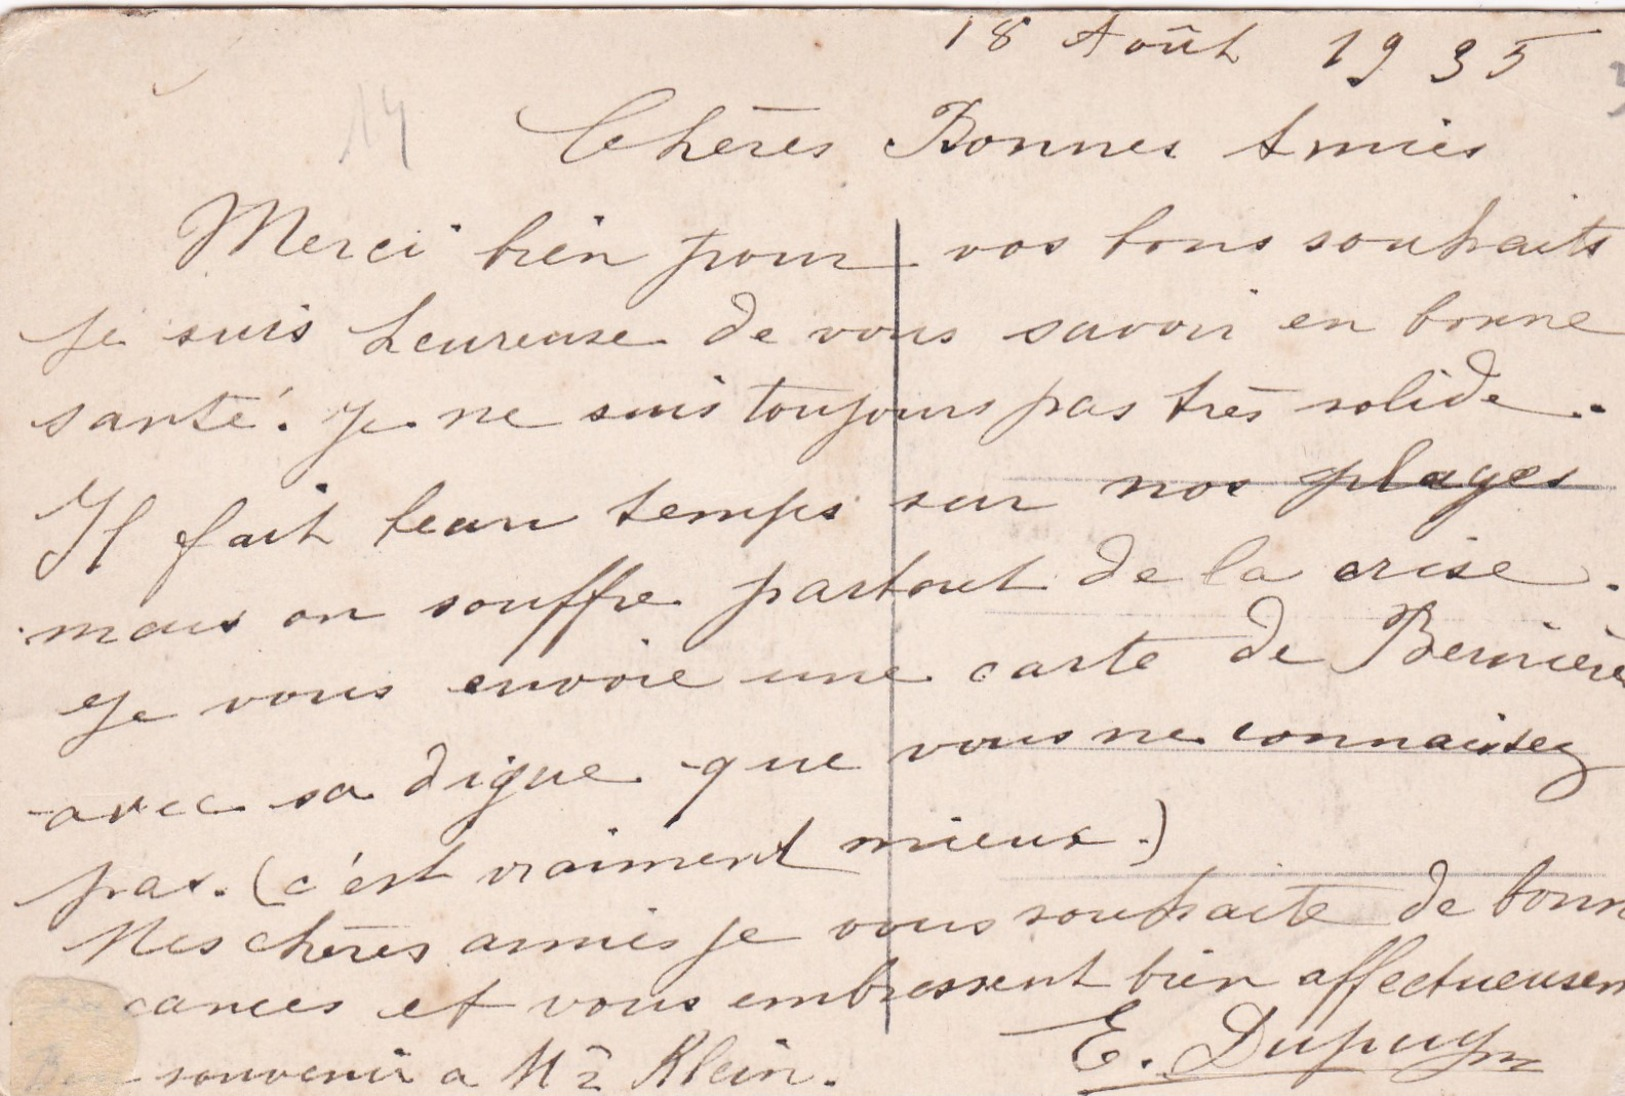 18 Août 1935
14
Chères Bonnes Amies
Merci bien pour vos bons souhaits
je suis heureuse de vous savoir en bonne
santé. Je ne suis toujours pas très solide.
Il fait beau temps sur nos plages
mais on souffre partout de la crise.
Je vous envoie une carte de Bernières
avec sa digue que vous ne connaissez
pas. (c'est vraiment mieux.)
Mes chères amies je vous souhaite de bonn
cances et vous embrassent bien affectueusem
souvenir a Me Klein.
E. Dupuy